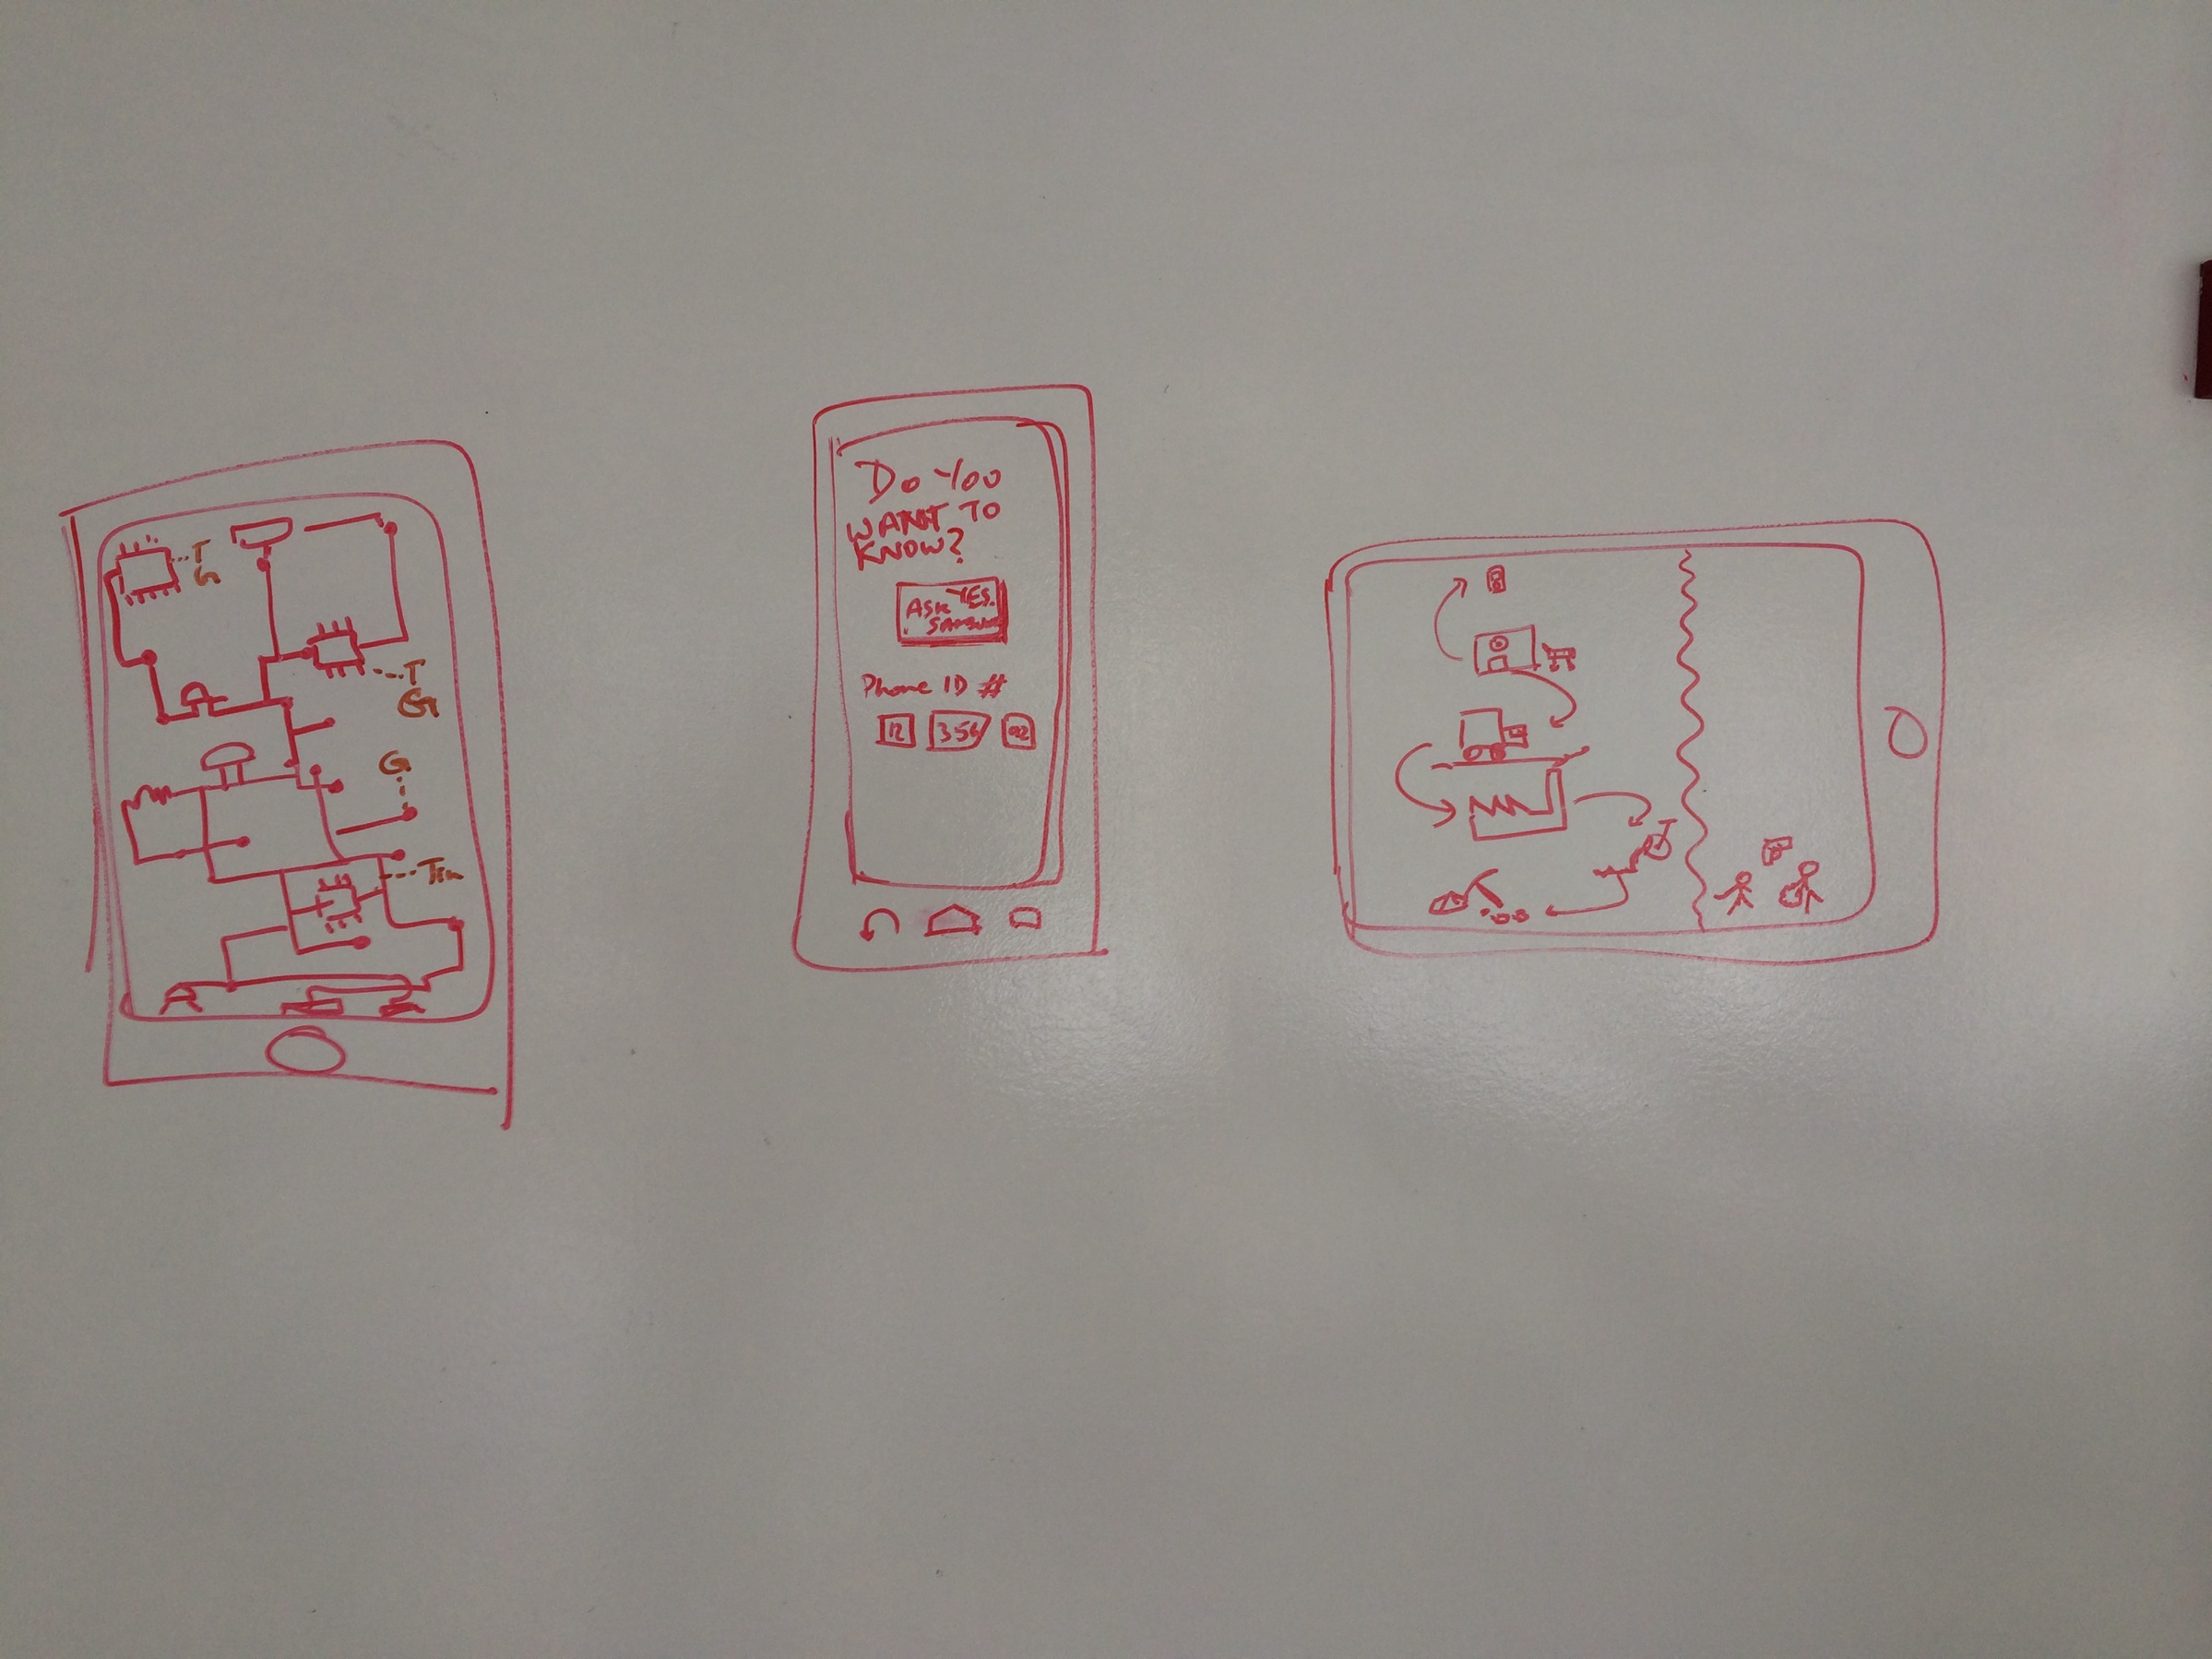 T
G
T
G
G
Tin
DO YOU
WANT TO
KNOW?
YES.
ASK
SAMSUNG
Phone ID #
12 356 02